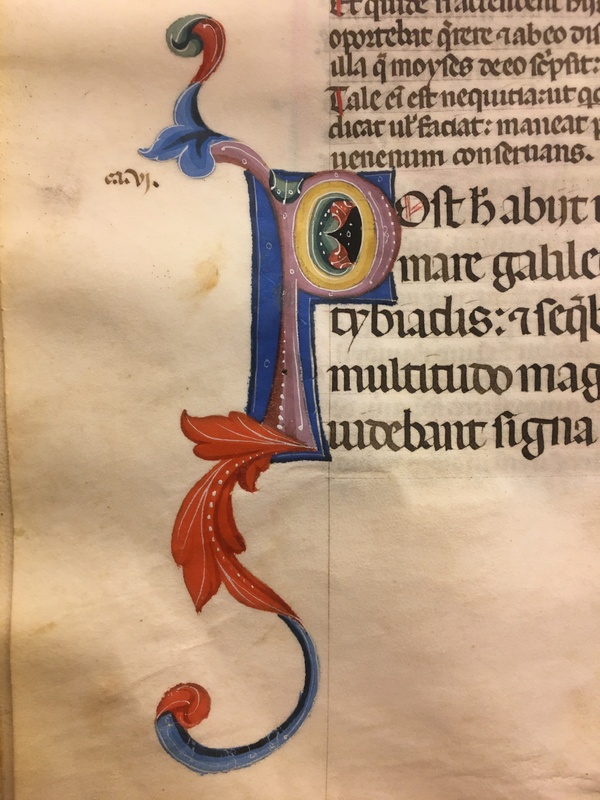 Et quid
oportebat q̄rere ⁊ ab eo
ulla q̄ moyses de eo sc̄psit:
Tale ei est nequitia: ut
dicat ul' faciat: maneat
uenenum conseruans.
ca. vj.
Post h̄ abijt
mare galile
tybiadis: ⁊ seq̄b
multitudo mag
uidebant signa